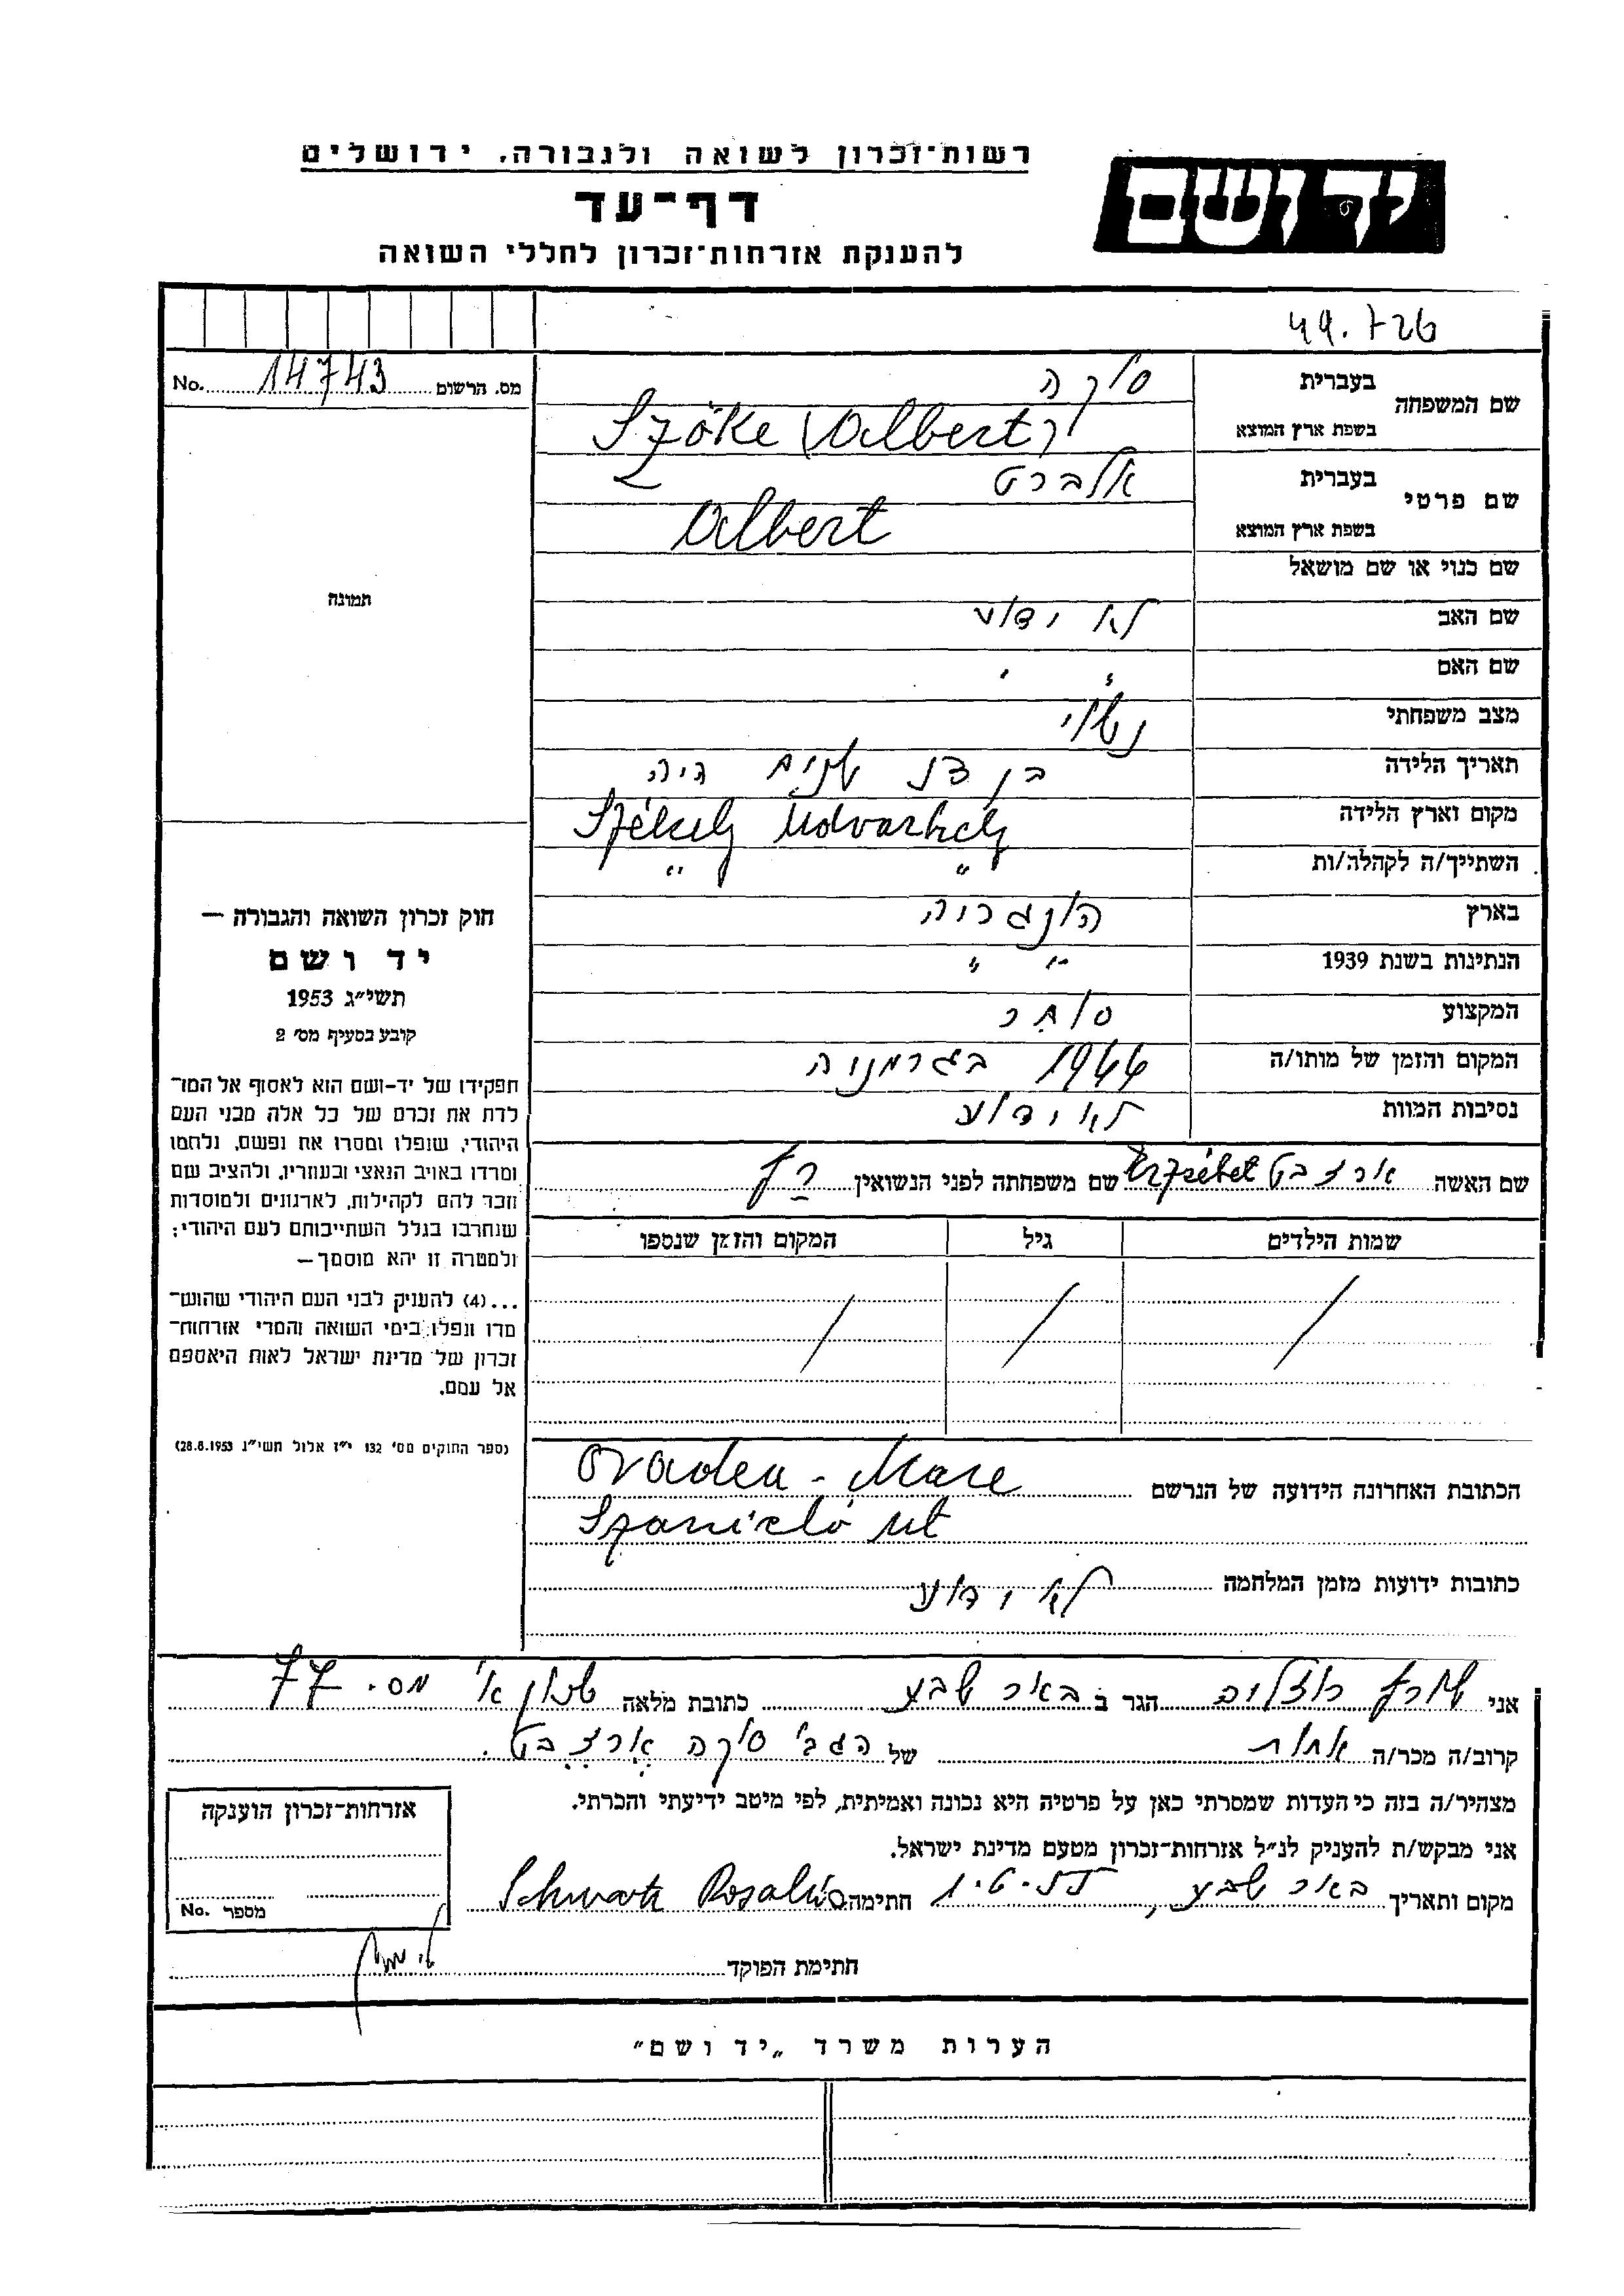 יד ושם
רשות־זכרון לשואה ולגבורה, ירושלים
דף־עד
להענקת אזרחות־זכרון לחללי השואה
49.726
No. 14743 מס. הרשום
שם המשפחה
בעברית סוקה
בשפת ארץ המוצא Szőke (Albert)
שם פרטי
בעברית אלברט
בשפת ארץ המוצא Albert
שם כנוי או שם מושאל
שם האב לא ידוע
שם האם " "
מצב משפחתי נשוי
תאריך הלידה בן שנים היה
מקום וארץ הלידה Székely Udvarhely
השתייך/ה לקהלה/ות " "
בארץ הונגריה
הנתינות בשנת 1939 " "
המקצוע סוחר
המקום והזמן של מותו/ה 1944 בגרמניה
נסיבות המוות לא ידוע
שם האשה ארצבט Erzsébet שם משפחתה לפני הנשואין
שמות הילדים גיל המקום והזמן שנספו
הכתובת האחרונה הידועה של הנרשם Oradea - Mare
Szaniszló ut
כתובות ידועות מזמן המלחמה לא ידוע
תמונה
חוק זכרון השואה והגבורה —
יד ושם
תשי״ג 1953
קובע בסעיף מס׳ 2
תפקידו של יד-ושם הוא לאסוף אל המו־
לדת את זכרם של כל אלה מבני העם
היהודי, שנפלו ומסרו את נפשם, נלחמו
ומרדו באויב הנאצי ובעוזריו, ולהציב שם
וזכר להם לקהילות, לארגונים ולמוסדות
שנחרבו בגלל השתייכותם לעם היהודי;
ולמטרה זו יהא מוסמך —
...(4) להעניק לבני העם היהודי שהוש־
מדו ונפלו בימי השואה והמרי אזרחות־
זכרון של מדינת ישראל לאות היאספם
אל עמם.
(ספר החוקים מס׳ 132 י״ז אלול תשי״ג 28.8.1953)
אני שורץ רוזליה הגר ב באר שבע כתובת מלאה שכון א' מס. 77
קרוב/ה מכר/ה אחות של הגב' סוקה ארצבט.
מצהיר/ה בזה כי העדות שמסרתי כאן על פרטיה היא נכונה ואמיתית, לפי מיטב ידיעתי והכרתי.
אני מבקש/ת להעניק לנ״ל אזרחות־זכרון מטעם מדינת ישראל.
מקום ותאריך באר שבע, חתימה Schwartz Rosalia
חתימת הפוקד
אזרחות־זכרון הוענקה
מספר No.
הערות משרד „יד ושם״